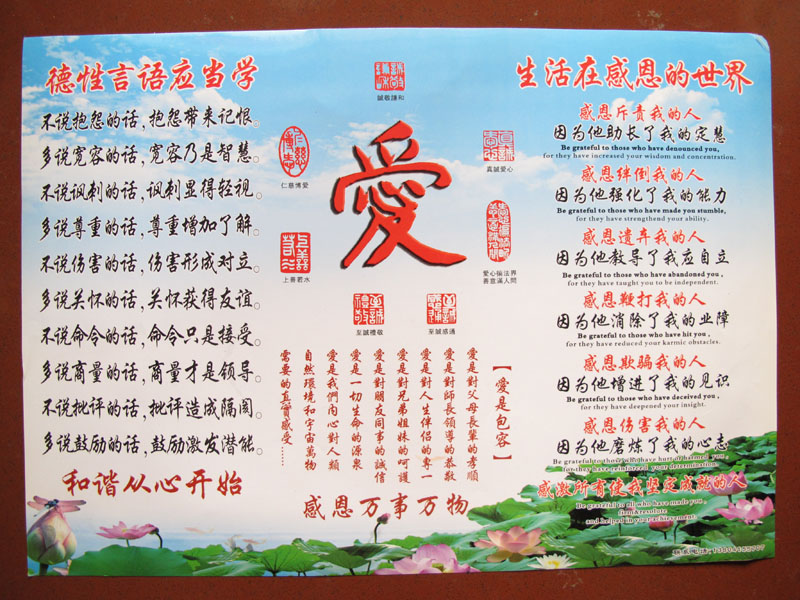 德性言语应当学
不说抱怨的话,抱怨带来记恨。
多说宽容的话,宽容乃是智慧。
不说讽刺的话,讽刺显得轻视。
多说尊重的话,尊重增加了解。
不说伤害的话,伤害形成对立。
多说关怀的话,关怀获得友谊。
不说命令的话,命令只是接受。
多说商量的话,商量才是领导。
不说批评的话,批评造成隔阂。
多说鼓励的话,鼓励激发潜能。
和谐从心开始
誠敬謙和
仁慈博愛
真誠愛心
愛
上善若水
愛心徧法界
善意滿人間
至誠禮敬
至誠感通
【愛是包容】
愛是對父母長輩的孝順
愛是對師長領導的恭敬
愛是對人生伴侶的專一
愛是對兄弟姐妹的呵護
愛是對朋友同事的誠信
愛是一切生命的源泉
愛是我們內心對人類
自然環境和宇宙萬物
需要的真實感受……
感恩万事万物
生活在感恩的世界
感恩斥责我的人
因为他助长了我的定慧
Be grateful to those who have denounced you,
for they have increased your wisdom and concentration.
感恩绊倒我的人
因为他强化了我的能力
Be grateful to those who have made you stumble,
for they have strengthened your ability.
感恩遗弃我的人
因为他教导了我应自立
Be grateful to those who have abandoned you,
for they have taught you to be independent.
感恩鞭打我的人
因为他消除了我的业障
Be grateful to those who have hit you,
for they have reduced your karmic obstacles.
感恩欺骗我的人
因为他增进了我的见识
Be grateful to those who have deceived you,
for they have deepened your insight.
感恩伤害我的人
因为他磨炼了我的心志
Be grateful to those who have hurt or harmed you,
for they have reinforced your determination.
感激所有使我坚定成就的人
Be grateful to all who have made you,
firm&resolute
and helped in your achievement.